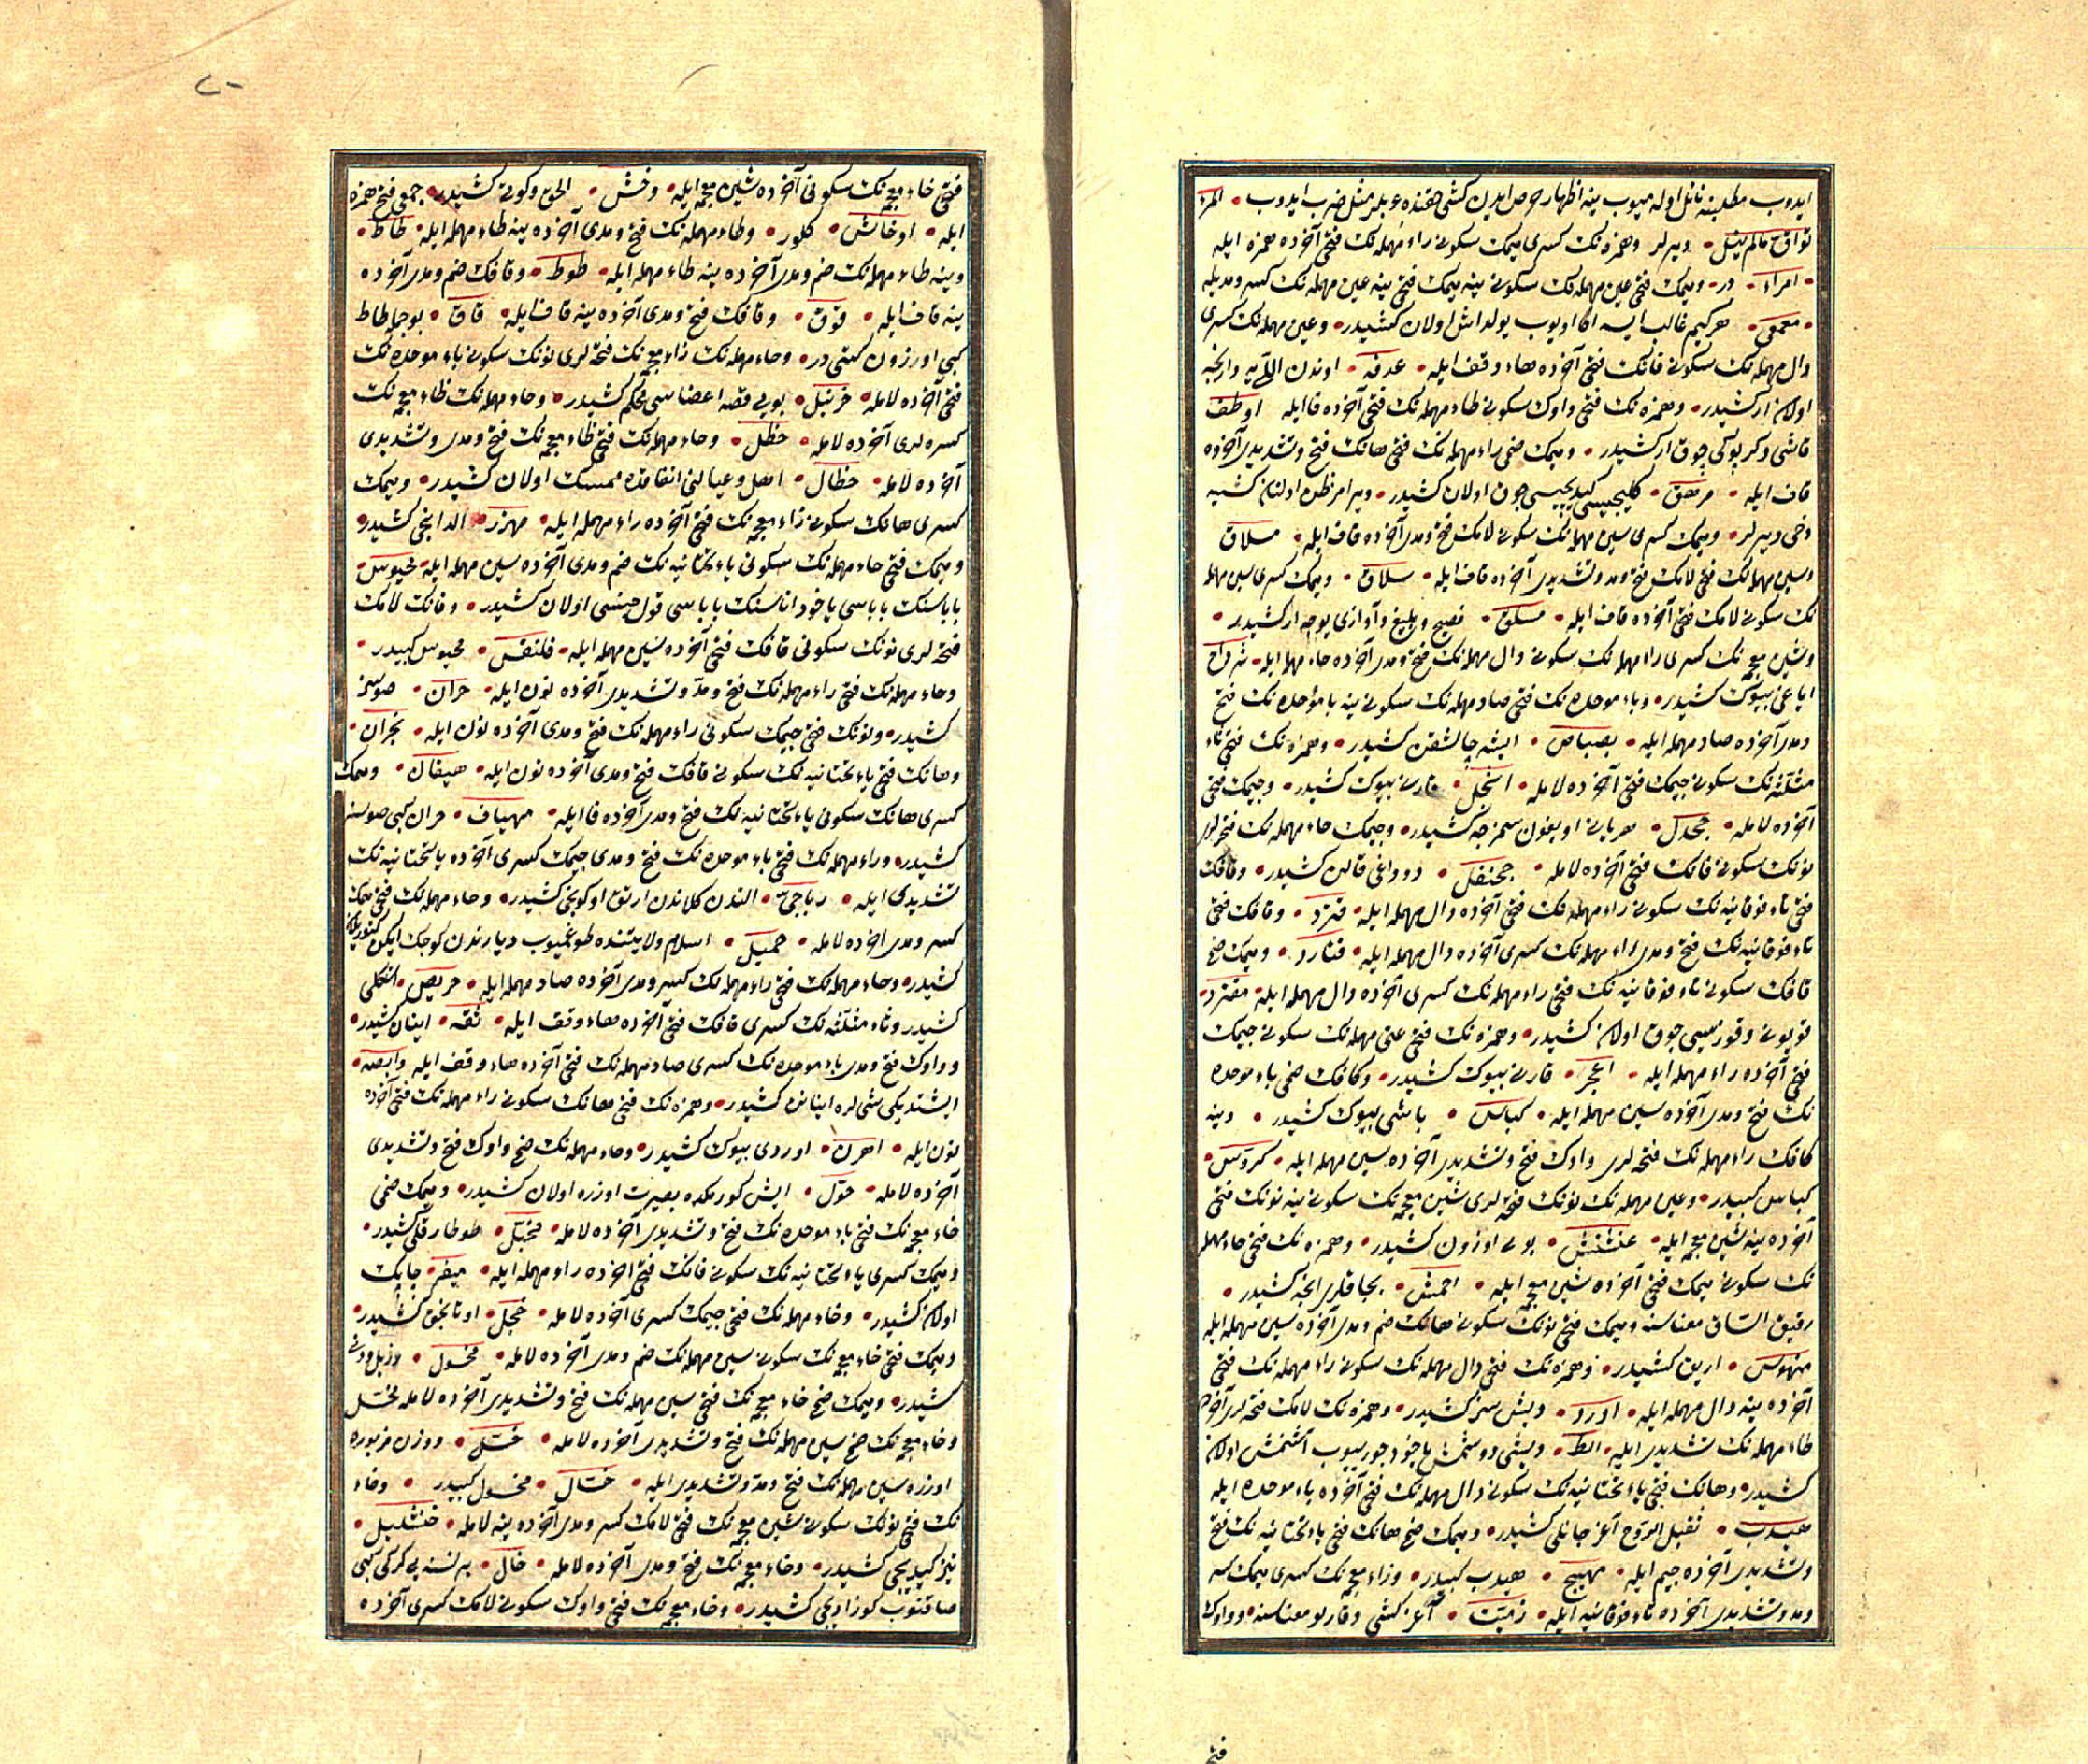 ایدوب مطلبنه نائل اوله میوب ینه اظهار حرص ایدن کشی حقنده عربلر مثل ضرب ایدوب • المرء
تواق مالم ینل • دیرلر وهمزه نک کسری میمک سکونی راء مهمله نک فتحی آخرده همزه ایله
• امراء • در • ومیمک فتحی عین مهمله نک سکونی ینه میمک فتحی ینه عین مهمله نک کسر ومدیله
• هر کیم غالب ایسه اکا اویوب یولداش اولان کشیدر • وعین مهمله نک کسری
دال مهمله نک سکونی قافک فتحی آخرده هاء وقف ایله • عدقه •
اولان ار کشیدر • وهمزه نک فتحی واوک سکونی طاء مهمله نک فتحی آخرده فا ایله اوطف
قاشی وکرپوکی چوق ار کشیدر • ومیمک ضمی راء مهمله نک فتحی هانک فتح وتشدیدی آخرده
قاف ایله • مرهق • کلیجیسی کیدیجیسی چوق اولان کشیدر • اولنان کشیه
دخی دیرلر • ومیمک کسری سین مهمله نک سکونی لامک فتح ومدی آخرده قاف ایله • مسلاق
وسین مهمله نک فتحی لامک فتح ومد وتشدیدی آخرده قاف ایله • سلاق • ومیمک کسری سین مهمله
نک سکونی لامک فتحی آخرده قاف ایله • مسلق • فصیح وبلیغ وآوازی یوجه ار کشیدر •
وشین معجمه نک کسری راء مهمله نک سکونی دال مهمله نک فتح ومدی آخرده حاء مهمله ایله • شرداح
ایاغی بیوک کشیدر • وباء موحده نک فتحی صاد مهمله نک سکونی ینه باء موحده نک فتح
ومدی آخرده صاد مهمله ایله • بصباص • ایشه چالشقن کشیدر • وهمزه نک فتحی ثاء
مثلثه نک سکونی جیمک فتحی آخرده لامله • اثجل • قارنی بیوک کشیدر • وجیمک فتحی
آخرده لامله • جحدل • کشیدر • وجیمک حاء مهمله نک فتحه لری
نونک سکونی فانک فتحی آخرده لامله • جحنفل • دوداغی قالن کشیدر • وقافک
فتحی تاء فوقانیه نک سکونی راء مهمله نک فتحی آخرده دال مهمله ایله • قترد • وقافک ضمی
تاء فوقانیه نک فتح ومدی راء مهمله نک کسری آخرده دال مهمله ایله • قتارد • ومیمک ضمی
قافک سکونی تاء فوقانیه نک فتحی راء مهمله نک کسری آخرده دال مهمله ایله • مقترد •
قویونی وقوزیسی چوق اولان کشیدر • وهمزه نک فتحی عین مهمله نک سکونی جیمک
فتحی آخرده راء مهمله ایله • اعجر • قارنی بیوک کشیدر • وکافک ضمی باء موحده
نک فتح ومدی آخرده سین مهمله ایله • کباس • باشی بیوک کشیدر • وینه
کافک راء مهمله نک فتحه لری واوک فتح وتشدیدی آخرده سین مهمله ایله • کروس •
کباس کبیدر • وعین مهمله نک نونک فتحه لری شین معجمه نک سکونی ینه نونک فتحی
آخرده ینه شین معجمه ایله • عنشنش • بویی اوزون کشیدر • وهمزه نک فتحی حاء مهمله
نک سکونی میمک فتحی آخرده شین معجمه ایله • احمش • بجاقلری انجه کشیدر •
رقیق الساق معناسنه ومیمک فتحی نونک سکونی هانک ضم ومدی آخرده سین مهمله ایله
منهوس • اریق کشیدر • وهمزه نک فتحی دال مهمله نک سکونی راء مهمله نک فتحی
آخرده ینه دال مهمله ایله • ادرد • دیشسز کشیدر • وهمزه نک لامک فتحه لری آخرده
طاء مهمله نک تشدیدی ایله • الط • دیشی دوشمش یاخود چوریوب اولان
کشیدر • وهانک فتحی یاء تحتانیه نک سکونی دال مهمله نک فتحی آخرده باء موحده ایله
هیدب • ثقیل الروح آغر جانلی کشیدر • ومیمک ضمی هانک فتحی یاء تحتانیه نک فتح
وتشدیدی آخرده جیم ایله • مهیج • هیدب کبیدر • وزاء معجمه نک کسری میمک کسر
ومد وتشدیدی آخرده تاء فوقانیه ایله • زمیت • آغر کشی وقارلو معناسنه • وواوک
فتح
فتحی خاء معجمه نک سکونی آخرده شین معجمه ایله • وخش • الحق وکوتی کشیدر • جمعی فتح همزه
ایله • اوخاش • کلور • وطاء مهمله نک فتح ومدی آخرده ینه طاء مهمله ایله • طاط •
وینه طاء مهمله نک ضم ومدی آخرده ینه طاء مهمله ایله • طوط • وقافک ضم ومدی آخرده
ینه قاف ایله • قوق • وقافک فتح ومدی آخرده ینه قاف ایله • قاق • بو جمله طاط
کبی اوزون کشی در • وحاء مهمله نک زاء معجمه نک فتحه لری نونک سکونی باء موحده نک
فتحی آخرده لامله • حزنبل • بویی قصه اعضاسی محکم کشیدر • وحاء مهمله نک ظاء معجمه نک
کسره لری آخرده لامله • حظل • وحاء مهمله نک فتحی ظاء معجمه نک فتح ومدی وتشدیدی
آخرده لامله • حظال • اهل وعیالنی انفاقده ممسک اولان کشیدر • ومیمک
کسری هانک سکونی زاء معجمه نک فتحی آخرده راء مهمله ایله • مهزر • الدانجی کشیدر •
ومیمک فتحی حاء مهمله نک سکونی یاء تحتانیه نک ضم ومدی آخرده سین مهمله ایله • محیوس •
باباسنک باباسی یاخود اناسنک باباسی قول جنسی اولان کشیدر • وفانک لامک
فتحه لری نونک سکونی قافک فتحی آخرده سین مهمله ایله • فلنقس • محیوس کبیدر •
وحاء مهمله نک فتحی راء مهمله نک فتح ومد وتشدیدی آخرده نون ایله • حران • صوسز
کشیدر • ونونک فتحی جیمک سکونی راء مهمله نک فتح ومدی آخرده نون ایله • نجران •
وهانک فتحی یاء تحتانیه نک سکونی فانک فتح ومدی آخرده نون ایله • هیفان • ومیمک
کسری هانک سکونی یاء تحتانیه نک فتح ومدی آخرده فا ایله • مهیاف • حران کبی صوسز
کشیدر • وراء مهمله نک فتحی باء موحده نک فتح ومدی جیمک کسری آخرده یاء تحتانیه نک
تشدیدی ایله • رباجی • الندن کلاندن ارتق اوکونجی کشیدر • وحاء مهمله نک فتحی میمک
کسر ومدی آخرده لامله • حمیل • اسلام ولایتنده طوغمیوب دیارندن کوچک ایکن کتوریلان
کشیدر • وحاء مهمله نک فتحی راء مهمله نک کسر ومدی آخرده صاد مهمله ایله • حریص •
کشیدر وثاء مثلثه نک کسری قافک فتحی آخرده هاء وقف ایله • ثقه • اینان کشیدر •
وواوک فتح ومدی باء موحده نک کسری صاد مهمله نک فتحی آخرده هاء وقف ایله وابصه •
ایشتدیکی شیلره اینانان کشیدر • وهمزه نک فتحی هانک سکونی راء مهمله نک فتحی آخرده
نون ایله • اهرن • اوردی بیوک کشیدر • وحاء مهمله نک ضمی واوک فتح وتشدیدی
آخرده لامله • حول • ایش کورمکده بصیرت اوزره اولان کشیدر • ومیمک ضمی
خاء معجمه نک فتحی باء موحده نک فتح وتشدیدی آخرده لامله • مخبل • کشیدر •
ومیمک کسری یاء تحتانیه نک سکونی فانک فتحی آخرده راء مهمله ایله • میفر • چابک
اولان کشیدر • وخاء مهمله نک فتحی جیمک کسری آخرده لامله • خجل • اوتانجق کشیدر •
ومیمک فتحی خاء معجمه نک سکونی سین مهمله نک ضم ومدی آخرده لامله • مخسول • رزیل ودنی
کشیدر • ومیمک ضمی خاء معجمه نک فتحی سین مهمله نک فتح وتشدیدی آخرده لامله مخسل
وخاء معجمه نک ضمی سین مهمله نک فتح وتشدیدی آخرده لامله • خسل • ووزن مزبوره
اوزره سین مهمله نک فتح ومد وتشدیدی ایله • خسال • مخسول کبیدر • وخاء
نک فتحی نونک سکونی شین معجمه نک فتحی لامک کسر ومدی آخرده ینه لامله • خنشلیل •
تیز کیدیجی کشیدر • وخاء معجمه نک فتح ومدی آخرده لامله • خال • بر نسنه یی کرکی کبی
صاقنوب کوزادیجی کشیدر • وخاء معجمه نک فتحی واوک سکونی لامک کسری آخرده